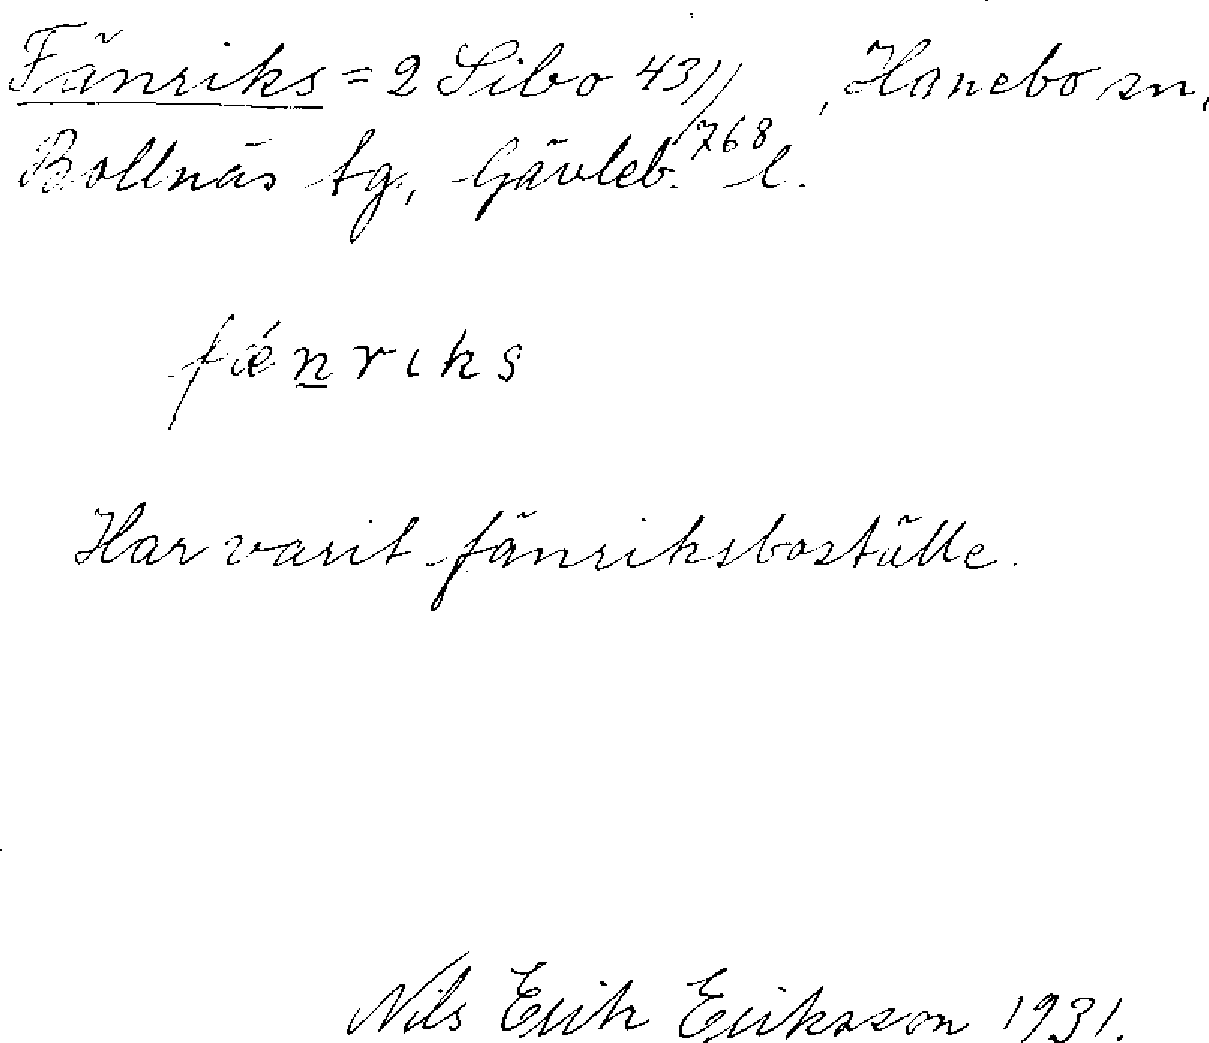 Fänriks = 2 Sibo 43//768, Hanebo sn,
Bollnäs tg, Gävleb. l.
fǽn̲rıks
Har varit fänriksboställe.
Nils Erik Eriksson 1931.